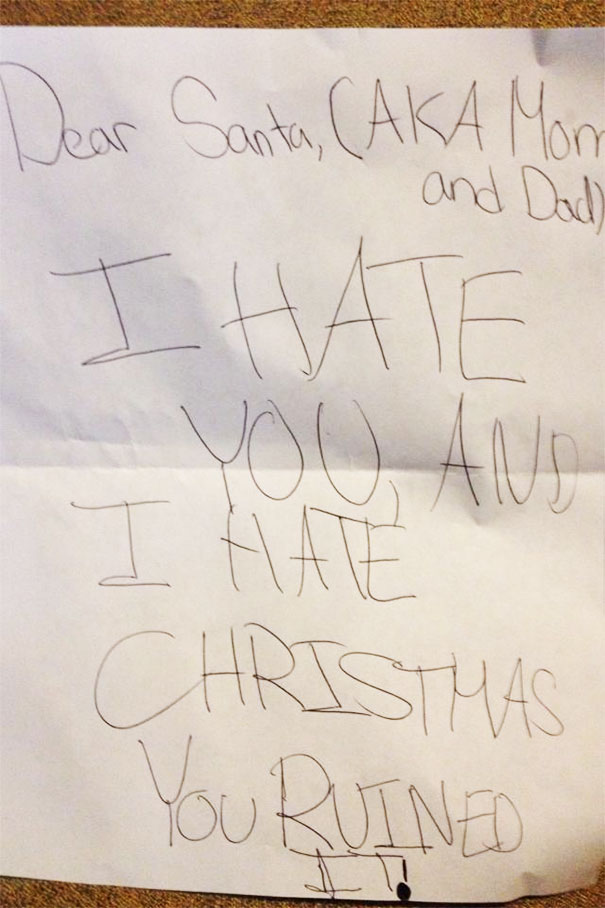 Dear Santa, (AKA Mom
and Dad)
I HATE
YOU, AND
I HATE
CHRISTMAS
YOU RUINED
IT!